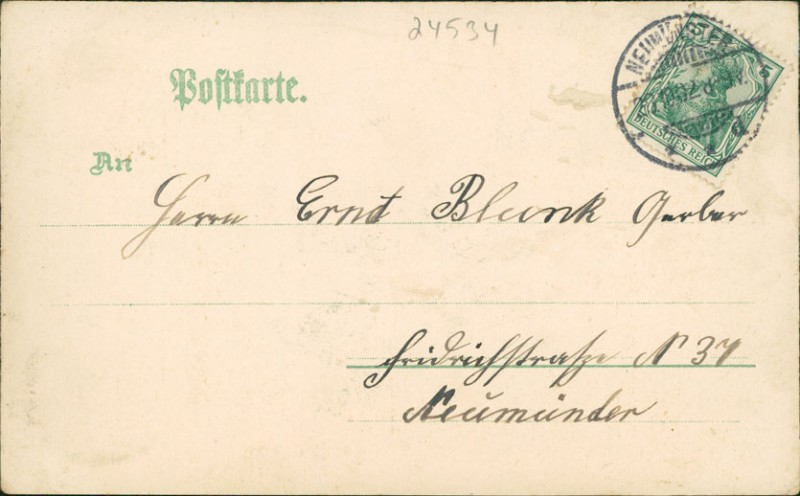 24534
NEUMÜNSTER
DEUTSCHES REICH
Postkarte.
An
Herrn Ernst Blunk Gerber
Fridrichstraße N 37
Neumünster